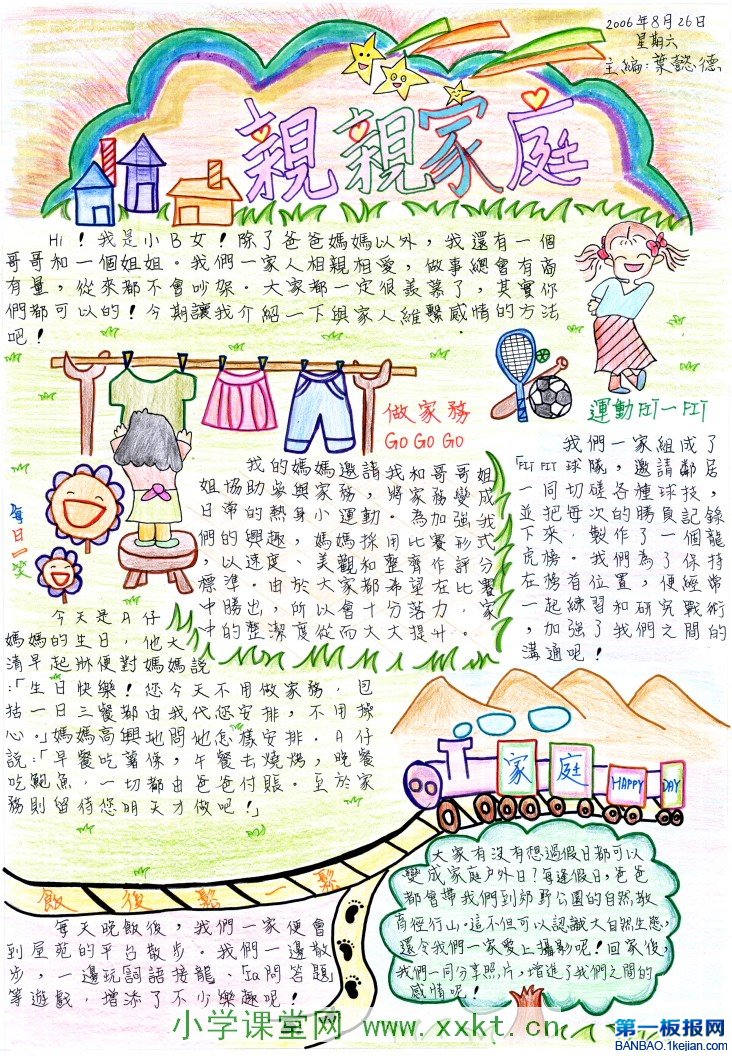 2006年8月26日
星期六
主編：葉懿德
親親家庭
Hi！我是小B女！除了爸爸媽媽以外，我還有一個
哥哥和一個姐姐。我們一家人相親相愛，做事總會有商
有量，從來都不會吵架。大家都一定很羨慕了，其實你
們都可以的！今期讓我介紹一下與家人維繫感情的方法
吧！
做家務
GO GO GO
我的媽媽邀請我和哥哥姐
姐協助參與家務，將家務變成
日常的熱身小運動。為加強我
們的興趣，媽媽採用比賽形式
，以速度、美觀和整齊作評分
標準。由於大家都希望在比賽
中勝出，所以會十分落力，家
中的整潔度從而大大提升。
運動FIT一FIT
我們一家組成了
「FIT FIT球隊，邀請鄰居
一同切磋各種球技，
並把每次的勝負記錄
下來，製作了一個龍
虎榜。我們為了保持
在榜首位置，便經常
一起練習和研究戰術
，加強了我們之間的
溝通呢！
每日一笑
今天是A仔
媽媽的生日，他大
清早起床便對媽媽說
：「生日快樂！您今天不用做家務，包
括一日三餐都由我代您安排，不用操
心。」媽媽高興地問他怎樣安排，A仔
說：「早餐吃薯條，午餐去燒烤，晚餐
吃鮑魚，一切都由爸爸付賬。至於家
務則留待您明天才做吧！」
家庭 HAPPY DAY
飯後鬆一鬆
每天晚飯後，我們一家便會
到屋苑的平台散步。我們一邊散
步，一邊玩詞語接龍、IQ問答題
等遊戲，增添了不少樂趣呢！
大家有沒有想過假日都可以
變成家庭戶外日？每逢假日，爸爸
都會帶我們到郊野公園的自然教
育徑行山。這不但可以認識大自然生態，
還令我們一家愛上攝影呢！回家後，
我們一同分享照片，增進了我們之間的
感情呢！
小学课堂网 www.xxkt.cn
第一板报网
BANBAO.1kejian.com